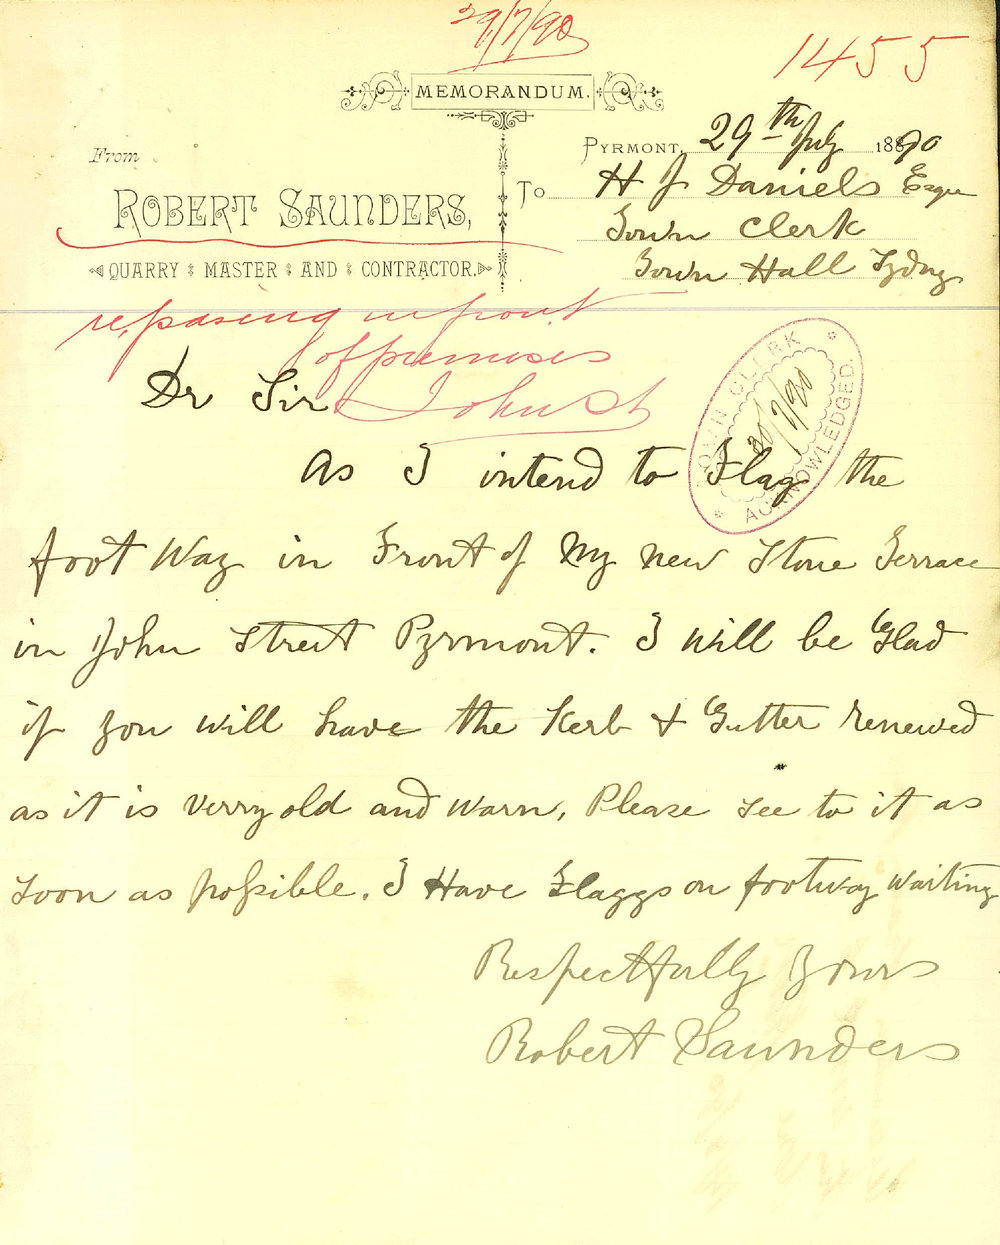 29/7/90
1455
MEMORANDUM.
From
PYRMONT, 29th July 1890
ROBERT SAUNDERS,
To H J Daniels Esqre
Town Clerk
QUARRY MASTER AND CONTRACTOR.
Town Hall Sydny
repairing in front
of premises
John St
TOWN CLERK
30/7/90
ACKNOWLEDGED.
Dr Sir
As I intend to Flag the
foot Way in Front of My new Stone Terrace
in John Street Pyrmont. I will be Glad
if you will have the Kerb & Gutter renewed
as it is verry old and warn, Please see to it as
soon as possible. I Have Flaggs on footway waiting
Respectfully Yours
Robert Saunders